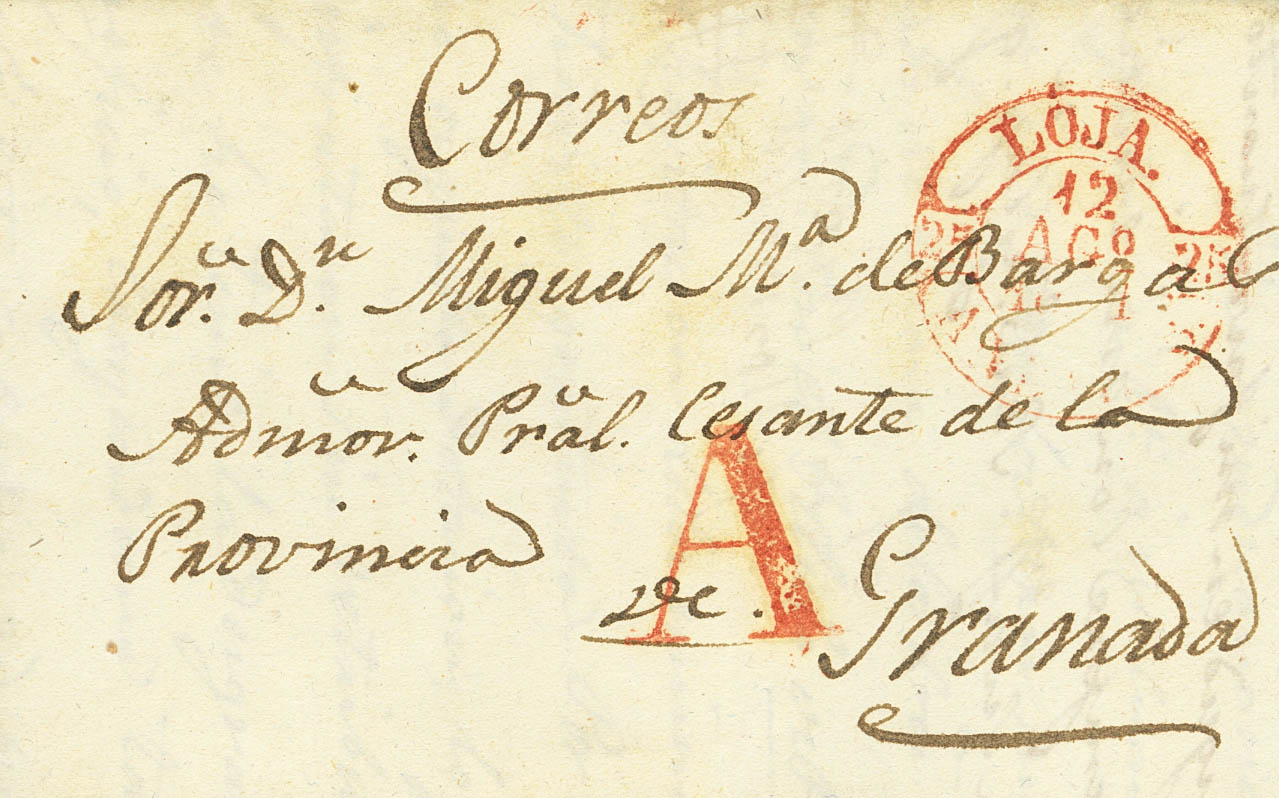 Correos
LOJA.
12
AGO
25 25
Sor. Dn. Miguel Ma. de Barga
Admor. Pral. Cesante de la
Provincia
A
de. Granada